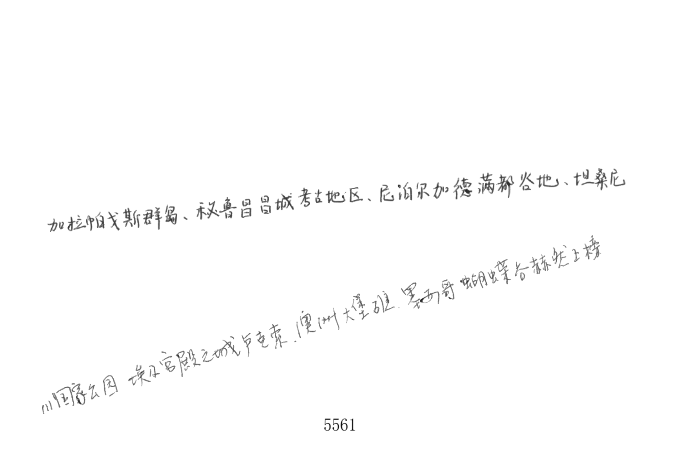 加拉帕戈斯群岛、秘鲁昌昌城考古地区、尼泊尔加德满都谷地、坦桑尼
川国家公园 埃及宫殿之城卢克索、澳洲大堡礁、墨西哥蝴蝶谷赫然上榜
5561